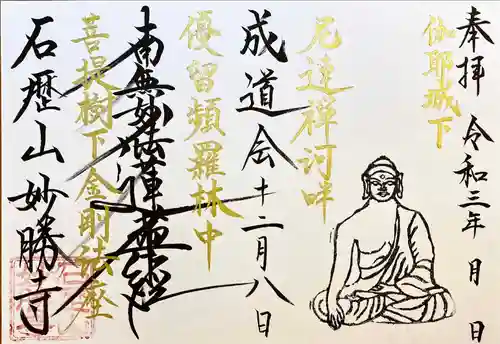 奉拝 令和三年 月 日
伽耶城下
尼連禅河畔
成道会 十二月八日
優留頻羅林中
南無妙法蓮華経
菩提樹下金剛法座
石歴山 妙勝寺